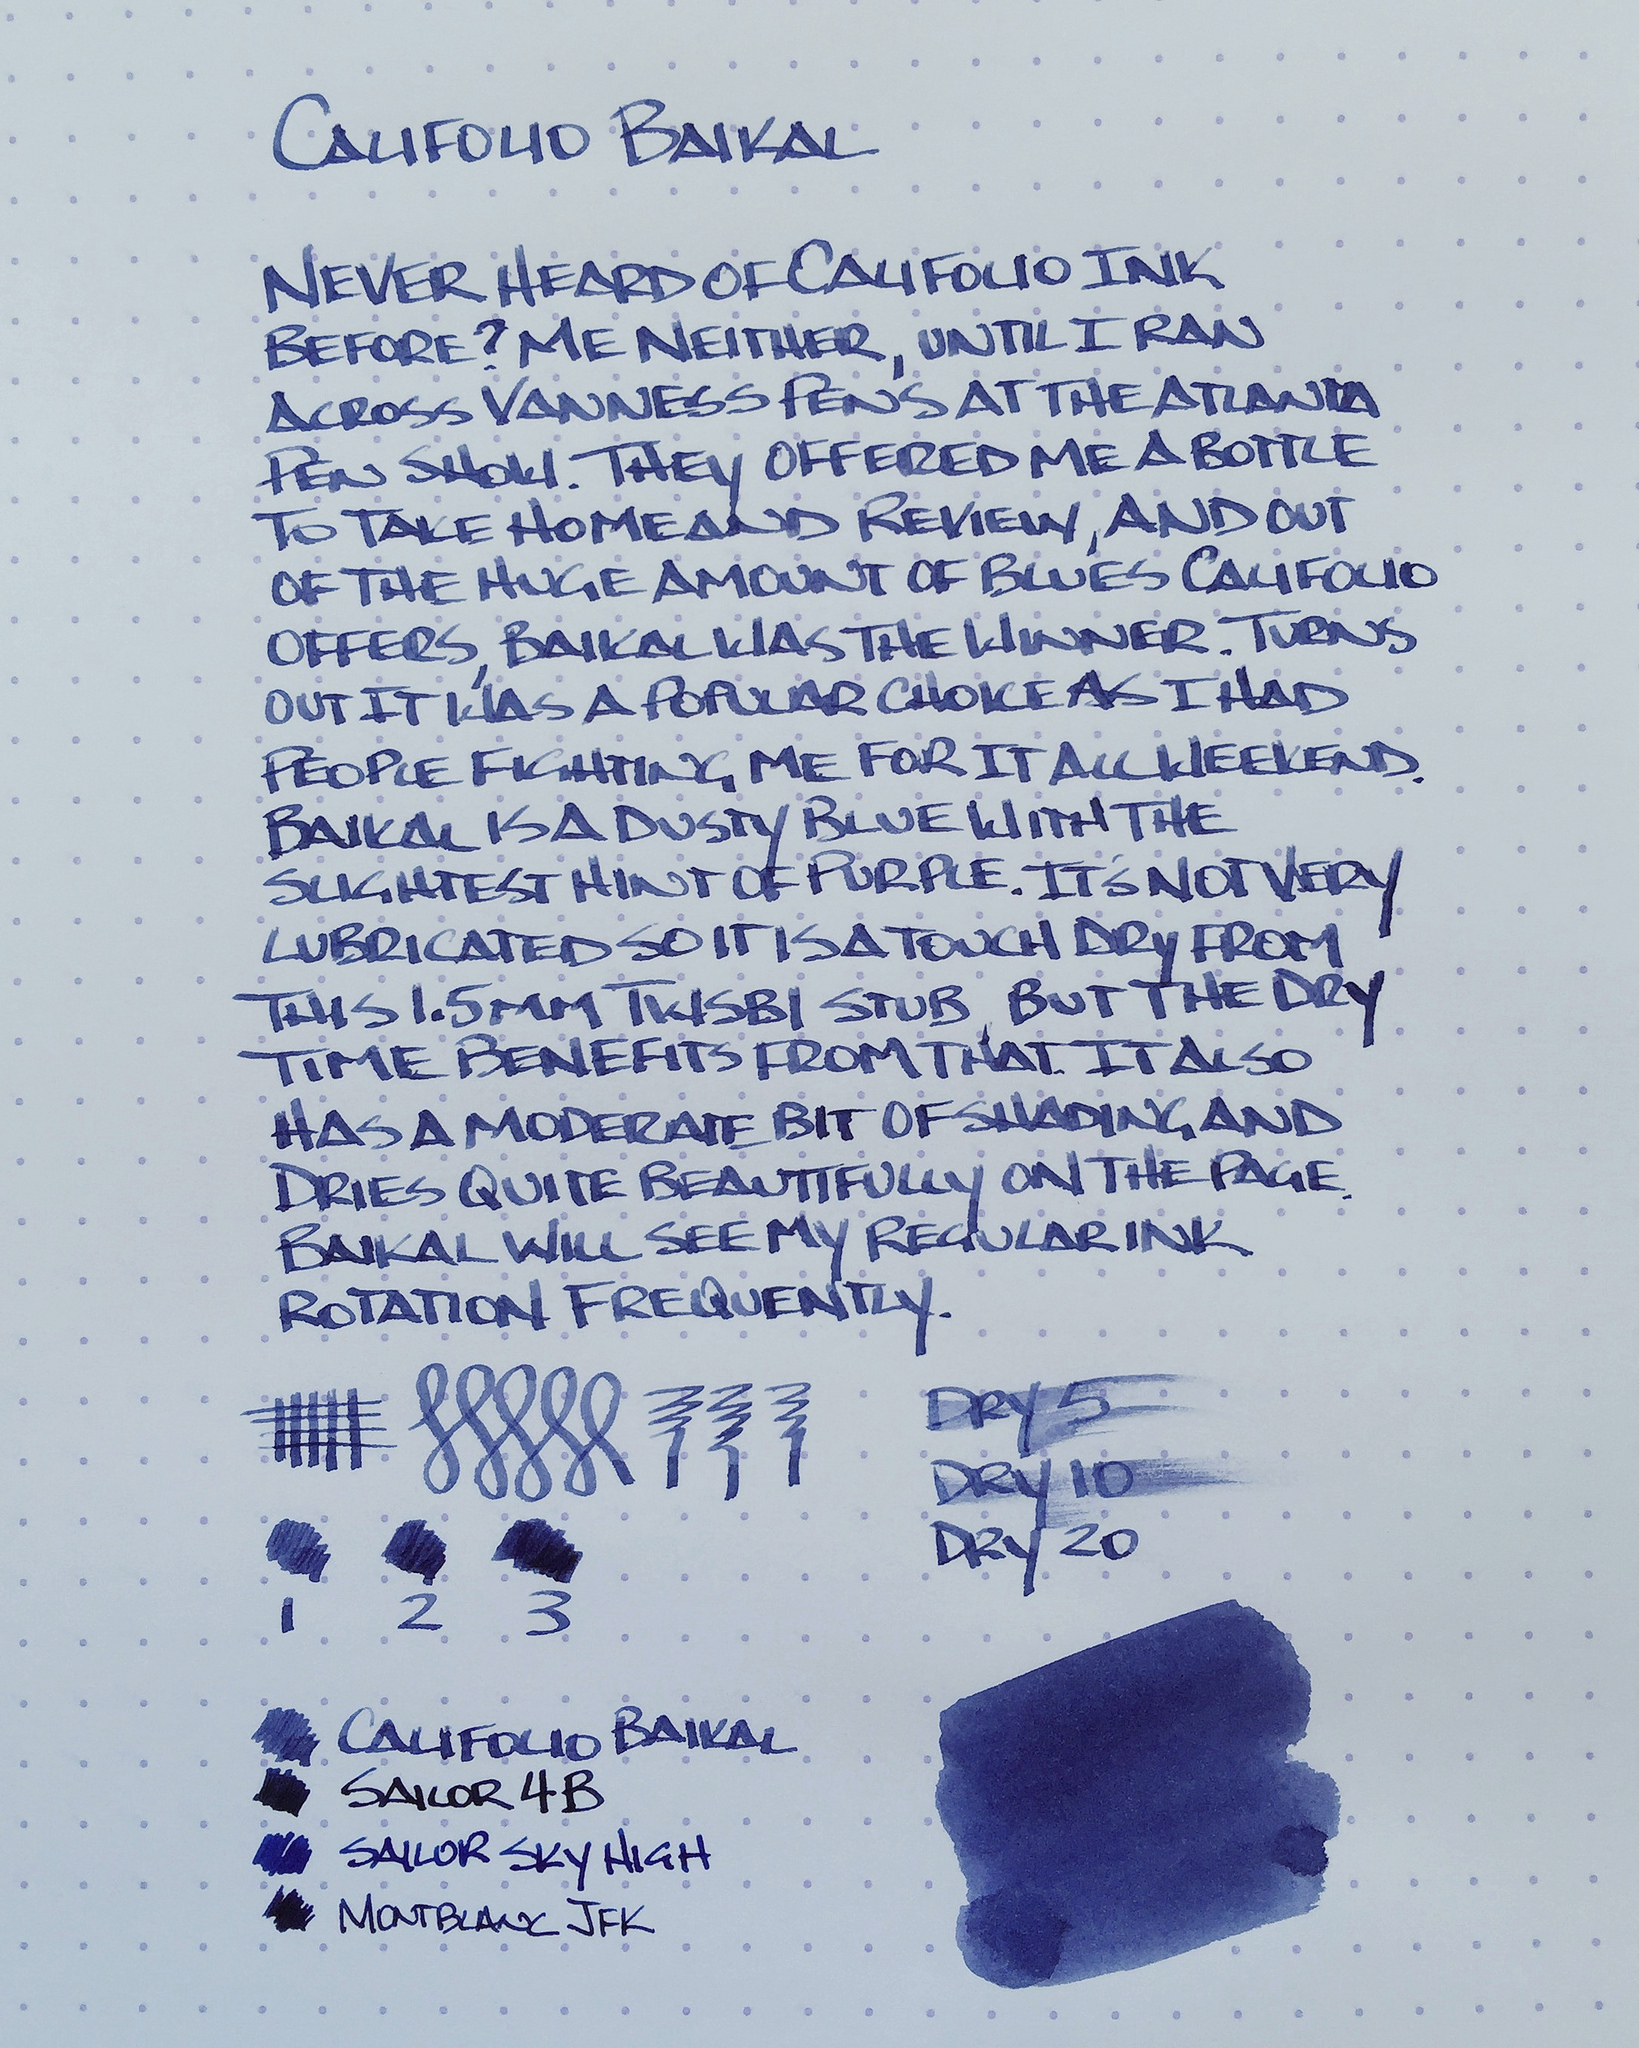 CALIFOLIO BAIKAL
NEVER HEARD OF CALIFOLIO INK
BEFORE? ME NEITHER, UNTIL I RAN
ACROSS VANNESS PENS AT THE ATLANTA
PEN SHOW. THEY OFFERED ME A BOTTLE
TO TAKE HOME AND REVIEW, AND OUT
OF THE HUGE AMOUNT OF BLUES CALIFOLIO
OFFERS, BAIKAL WAS THE WINNER. TURNS
OUT IT WAS A POPULAR CHOICE AS I HAD
PEOPLE FIGHTING ME FOR IT ALL WEEKEND.
BAIKAL IS A DUSTY BLUE WITH THE
SLIGHTEST HINT OF PURPLE. IT'S NOT VERY
LUBRICATED SO IT IS A TOUCH DRY FROM
THIS 1.5MM TWSBI STUB, BUT THE DRY
TIME BENEFITS FROM THAT. IT ALSO
HAS A MODERATE BIT OF SHADING AND
DRIES QUITE BEAUTIFULLY ON THE PAGE.
BAIKAL WILL SEE MY REGULAR INK
ROTATION FREQUENTLY.
DRY 5
DRY 10
DRY 20
1 2 3
CALIFOLIO BAIKAL
SAILOR 4B
SAILOR SKY HIGH
MONTBLANC JFK